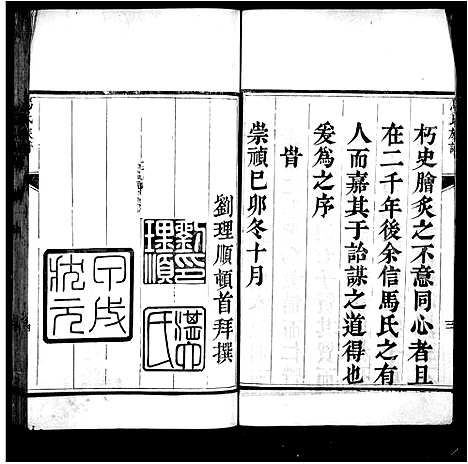 朽史膾炙之不意同心者且
在二千年後余信馬氏之有
人而嘉其于詒謀之道得也
爰為之序
旹
崇禎己卯冬十月
劉理順頓首拜撰
劉印
理順
湛
氏
甲戌
狀元